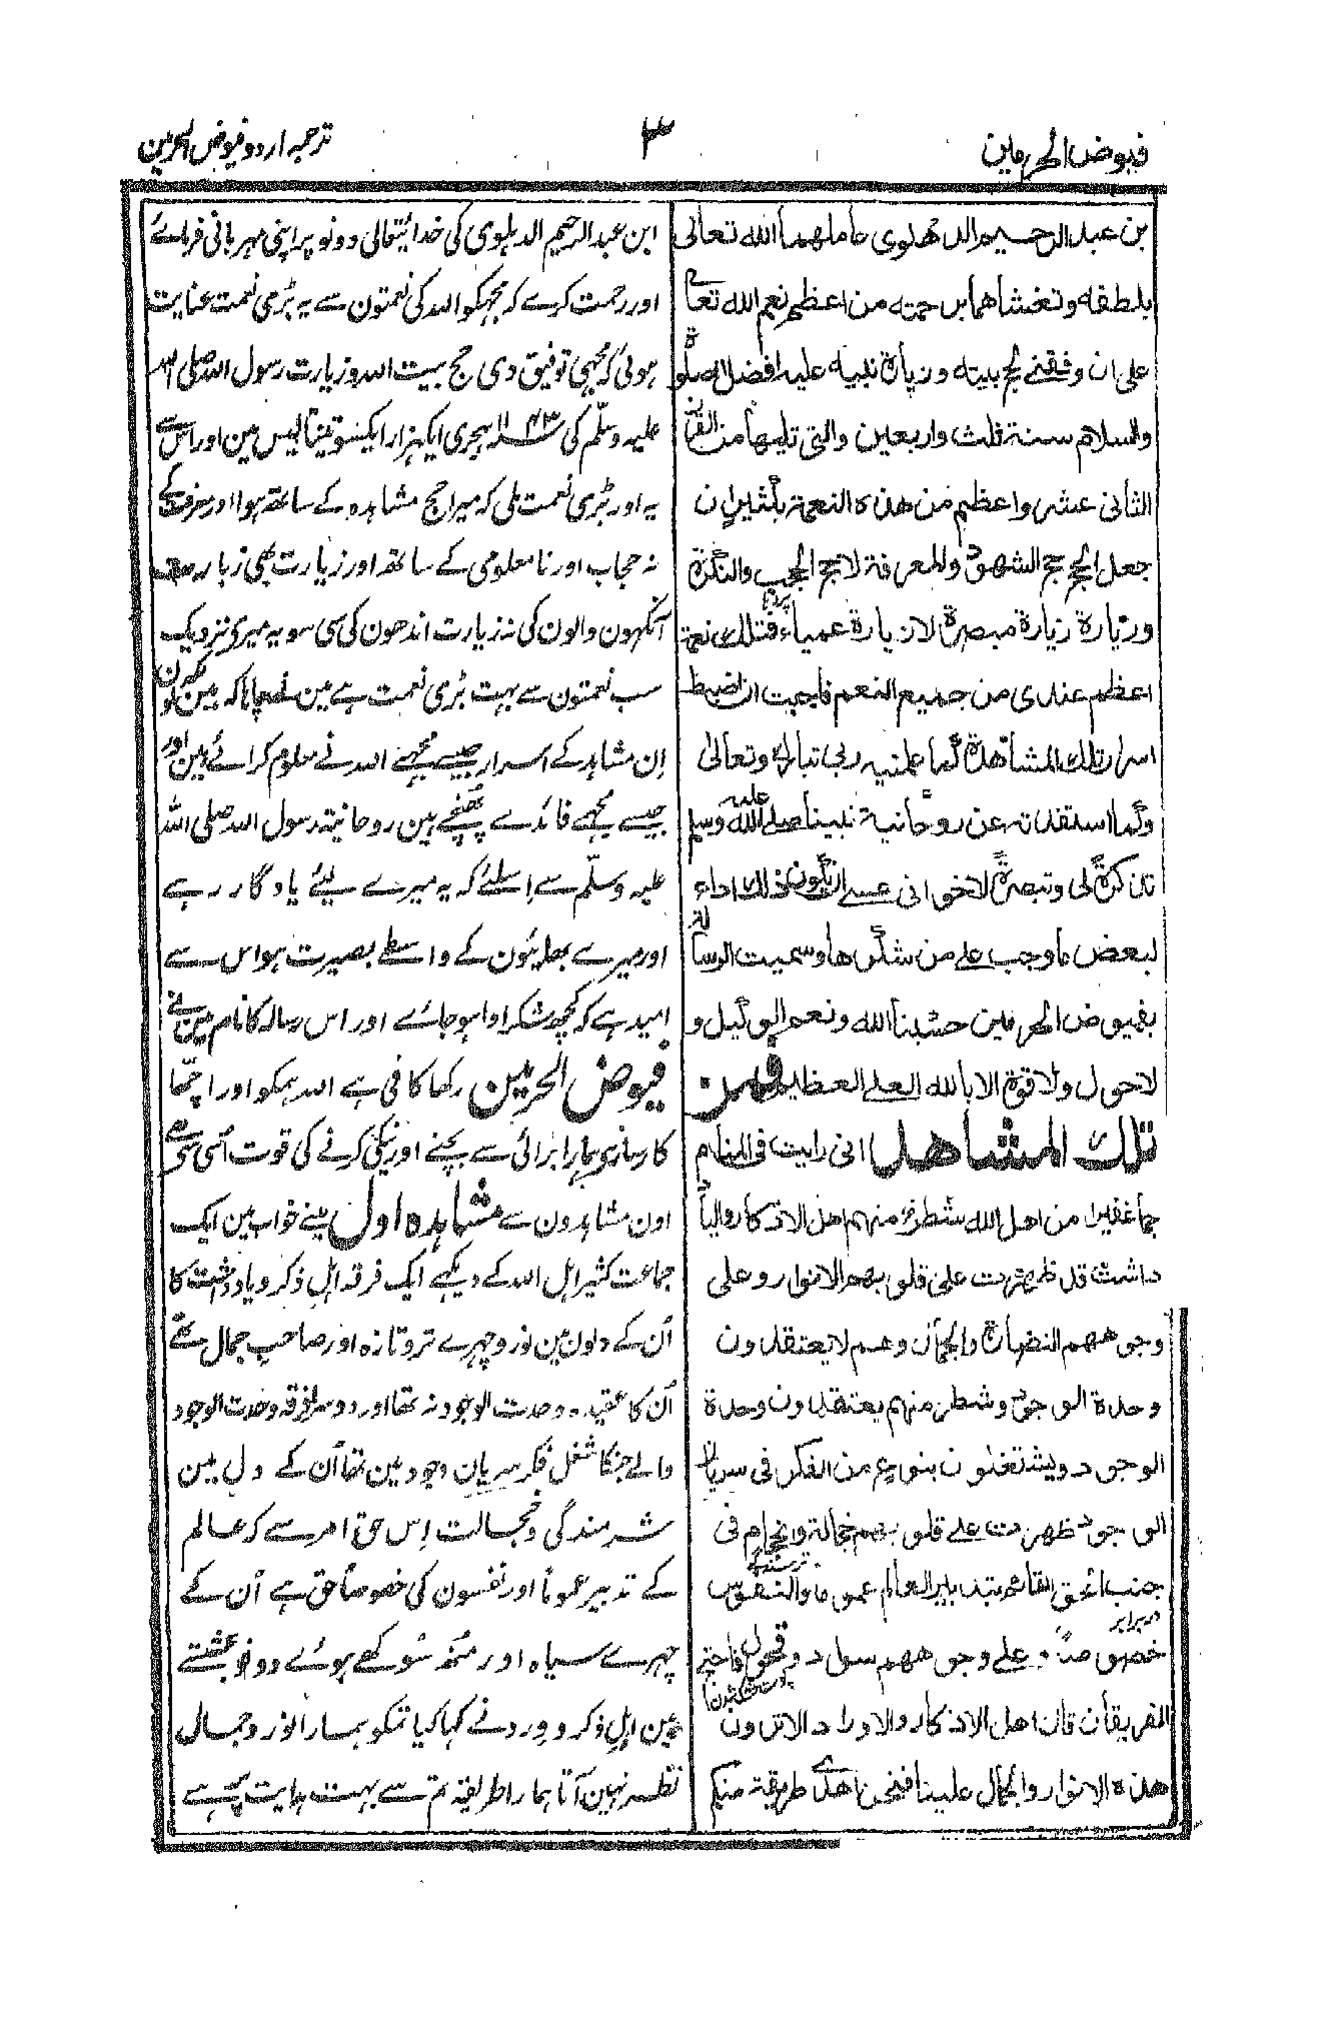 فیوض الحرمین
۳
ترجمہ اردو فیوض الحرمین
بن عبد الرحیم الدهلوی عاملهما الله تعالی
بلطفه وتغشاهما برحمته من اعظم نعم الله تعالی
علی ان وفقنی لحج بیته وزیارة نبیه علیه افضل الصلوة
والسلام سنة ثلث واربعین والتی تلیها من القرن
الثانی عشر واعظم من هذه النعمة بکثیر ان
جعل الحج حج الشهود والمعرفة لا حج الحجب والنکرة
وزیارة زیارة مبصرة لا زیارة عمیاء فتلک نعمة
اعظم عندی من جمیع النعم فاحببت ان اضبط
اسرار تلک المشاهدة کما علمنیه ربی تبارک وتعالی
وکما استفدته عن روحانیة نبینا صلی الله علیه وسلم
تذکرة لی وتبصرة لاخوانی عسی ان یکون ذلک اداء
لبعض ما وجب علی من شکرها وسمیت الرسالة
بفیوض الحرمین حسبنا الله ونعم الوکیل و
لا حول ولا قوة الا بالله العلی العظیم فمن
تلک المشاهد انی رایت فی المنام
جما غفیرا من اهل الله شطر منهم اهل الاذکار والیاد
داشت قد ظهرت علی قلوبهم الانوار وعلی
وجوههم النضارة والجمال وهم لا یعتقدون
وحدة الوجود وشطر منهم یعتقدون وحدة
الوجود ویشتغلون بنوع من الفکر فی سریان
الوجود ظهرت علی قلوبهم خجالة وانحجام فی
جنب الحق القائم بتدبیر العالم عموما والنفوس
خصوصا وعلی وجوههم سواد وقحول فاختصم
الفریقان قال اهل الاذکار والاوراد الا ترون
هذه الانوار والجمال علینا افنحن اهدی طریقة منکم
ابن عبد الرحیم الدہلوی کی خدائیتعالی دونو پر اپنی مہربانی فرمائے
اور رحمت کرے کہ مجہکو اللہ کی نعمتون سے یہ بڑی نعمت عنایت
ہوئی کہ مجہی توفیق دی حج بیت اللہ و زیارت رسول اللہ صلی اللہ
علیہ وسلّم کی ۱۱۴۳ ہجری ایکہزار ایکسو تینتالیس مین اور اس سے
یہ اور بڑی نعمت ملی کہ میرا حج مشاہدہ کے ساتھ ہوا اور معرفت کے
نہ حجاب اور نامعلومی کے ساتھ اور زیارت بھی زیارت
آنکہون والون کی نہ زیارت اندھون کی سی سو یہ میری نزدیک
سب نعمتون سے بہت بڑی نعمت ہے مین نے چاہا کہ مین لکھون
اِن مشاہد کے اسرار جیسے مجہے اللہ نے معلوم کرائے ہین اور
جیسے مجہے فائدے پہنچے ہین روحانیت رسول اللہ صلی اللہ
علیہ وسلّم سے اِسلئے کہ یہ میرے لیئے یادگار رہے
اور میرے بھائیون کے واسطے بصیرت ہو اس سے
امید ہے کہ کچھ شکر ادا ہو جائے اور اس رسالہ کا نام مین نے
فیوض الحرمین رکھا کافی ہے اللہ ہمکو اور اچّھا
کارساز ہو ہمارا برائی سے بچنے اور نیکی کرنے کی قوت اُسی سے ہے
اون مشاہدون سے مشاہدہ اول مینے خواب مین ایک
جماعت کثیر اہل اللہ کے دیکہی ایک فرقہ اہل ذکر و یادداشت کا
اُن کے دلون مین نور و چہرے تر و تازہ اور صاحب جمال تھے
اُن کا عقیدہ وحدت الوجود نہ تھا اور دوسرا فرقہ وحدت الوجود
والے جنکا شغل فکر سریان وجود مین تھا اُن کے دل مین
شرمندگی و خجالت اِس حق امر سے کہ عالم
کے تدبیر عموماً اور نفسون کی خصوصاً حق ہے اُن کے
چہرے سیاہ اور منہ سُوکھے ہوئے دونو بحثتے
ہین اہل ذکر و ورد نے کہا کیا تمکو ہمارا نور و جمال
نظر نہین آتا ہمارا طریقہ تم سے بہت ہدایت پر ہے